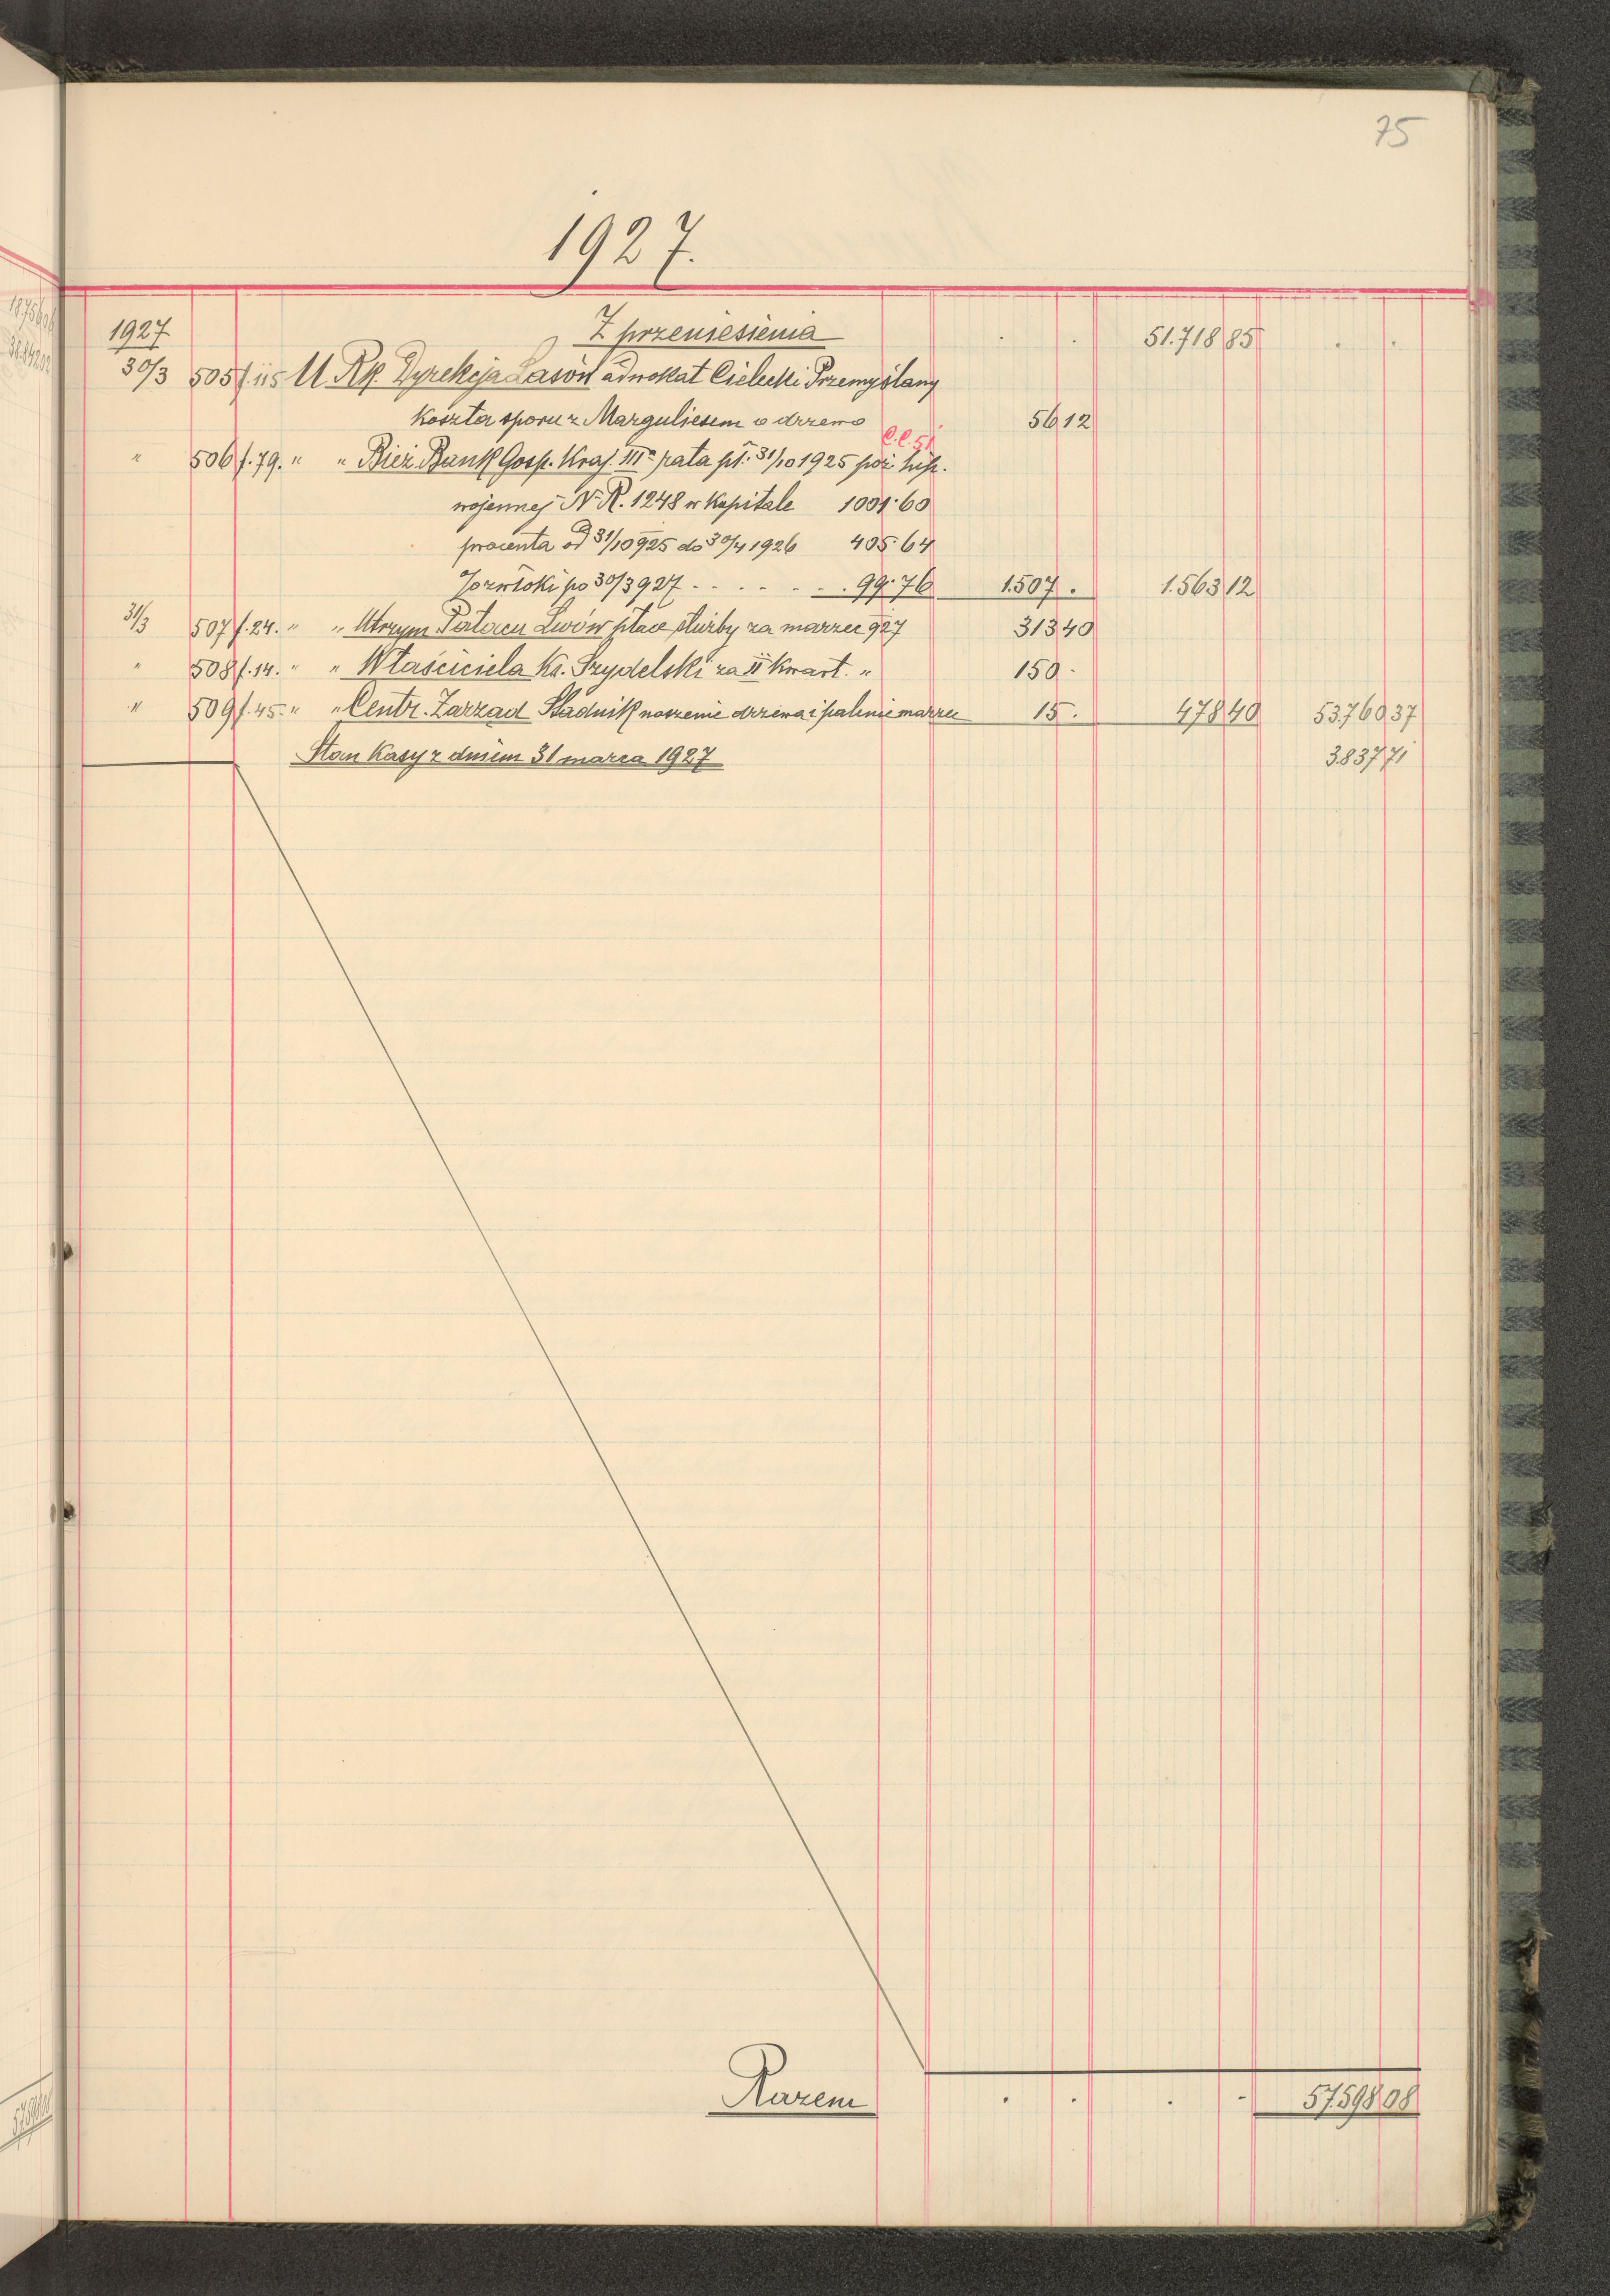 75
1927.
1927 Z przeniesienia . . 51.718 85 . .
30/3 505 f. 115 U Rk. Dyrekcja Lasów adwokat Cielecki Przemyślany
Koszta sporu z Marguliesem o drzewo 56 12
C.C. 51
" 506 f. 79. " " Bież. Bank Gosp. Kraj. IIIa rata pł. 31/10 1925 poż. hip.
wojennej N. R. 1248 w kapitale 1001·60
procenta od 31/10 925 do 30/4 1926 405·64
Zozwłoki po 30/3 927 . . . . . . 99·76 1.507 . 1.563 12
31/3 507 f. 24. " " Utrzym. Pałacu Lwów płace służby za marzec 927 313 40
" 508 f. 14. " " Właściciela Ks. Szydelski za II kwart. " 150 -
" 509 f. 45. " " Centr. Zarząd Stadnik noszenie drzewa i palenie marzec 15 . 478 40 53.760 37
Stan Kasy z dniem 31 marca 1927 3.837 71
Razem . . . - 57.598 08